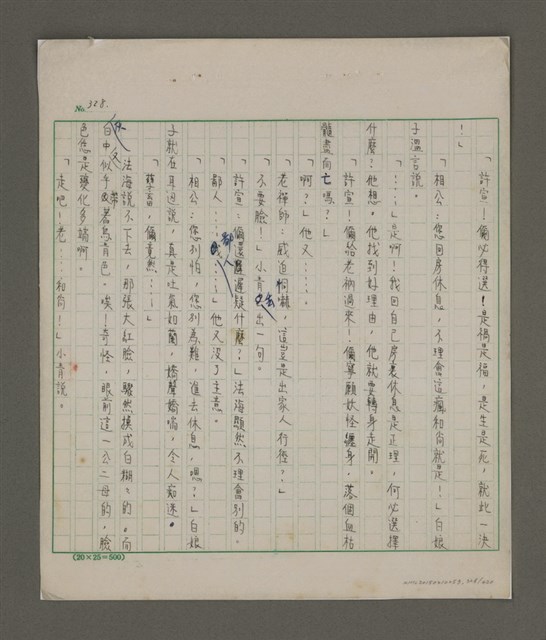 No. 328.
「許宣!偏必得選!是禍是福,是生是死,就此一決
!」
「相公:您回房休息,不理會這瘋和尚就是!」白娘
子溫言說。
「……」是啊!我回自己房裏休息是正理,何必選擇
什麼?他想,他找到好理由,他就要轉身走開。
「許宣!偏給老衲過來!偏寧願妖怪纏身,落個血枯
髓盡而亡嗎?」
「啊?」他又……
「老禪師:威迫恫嚇,這豈是出家人行徑?」
「不要臉!」小青出一句。
「許宣:偏還遲疑什麼?」法海顯然不理會別的。
「鄙人……」他又沒了主意。
「相公:您別怕,您別為難,進去休息,嗯?」白娘
子就在耳邊說,真是吐氣如蘭,嬌聲嬌喘,令人痴迷。
「許宣,偏竟然……」
法海說不下去,那張大紅臉,驟然摸成白糊糊的。而
白中似乎又帶著烏青色。唉!奇怪,眼前這一公二母的,臉
色怎是變化多端啊。
「走吧!老……和尚!」小青說。
(20×25=500)